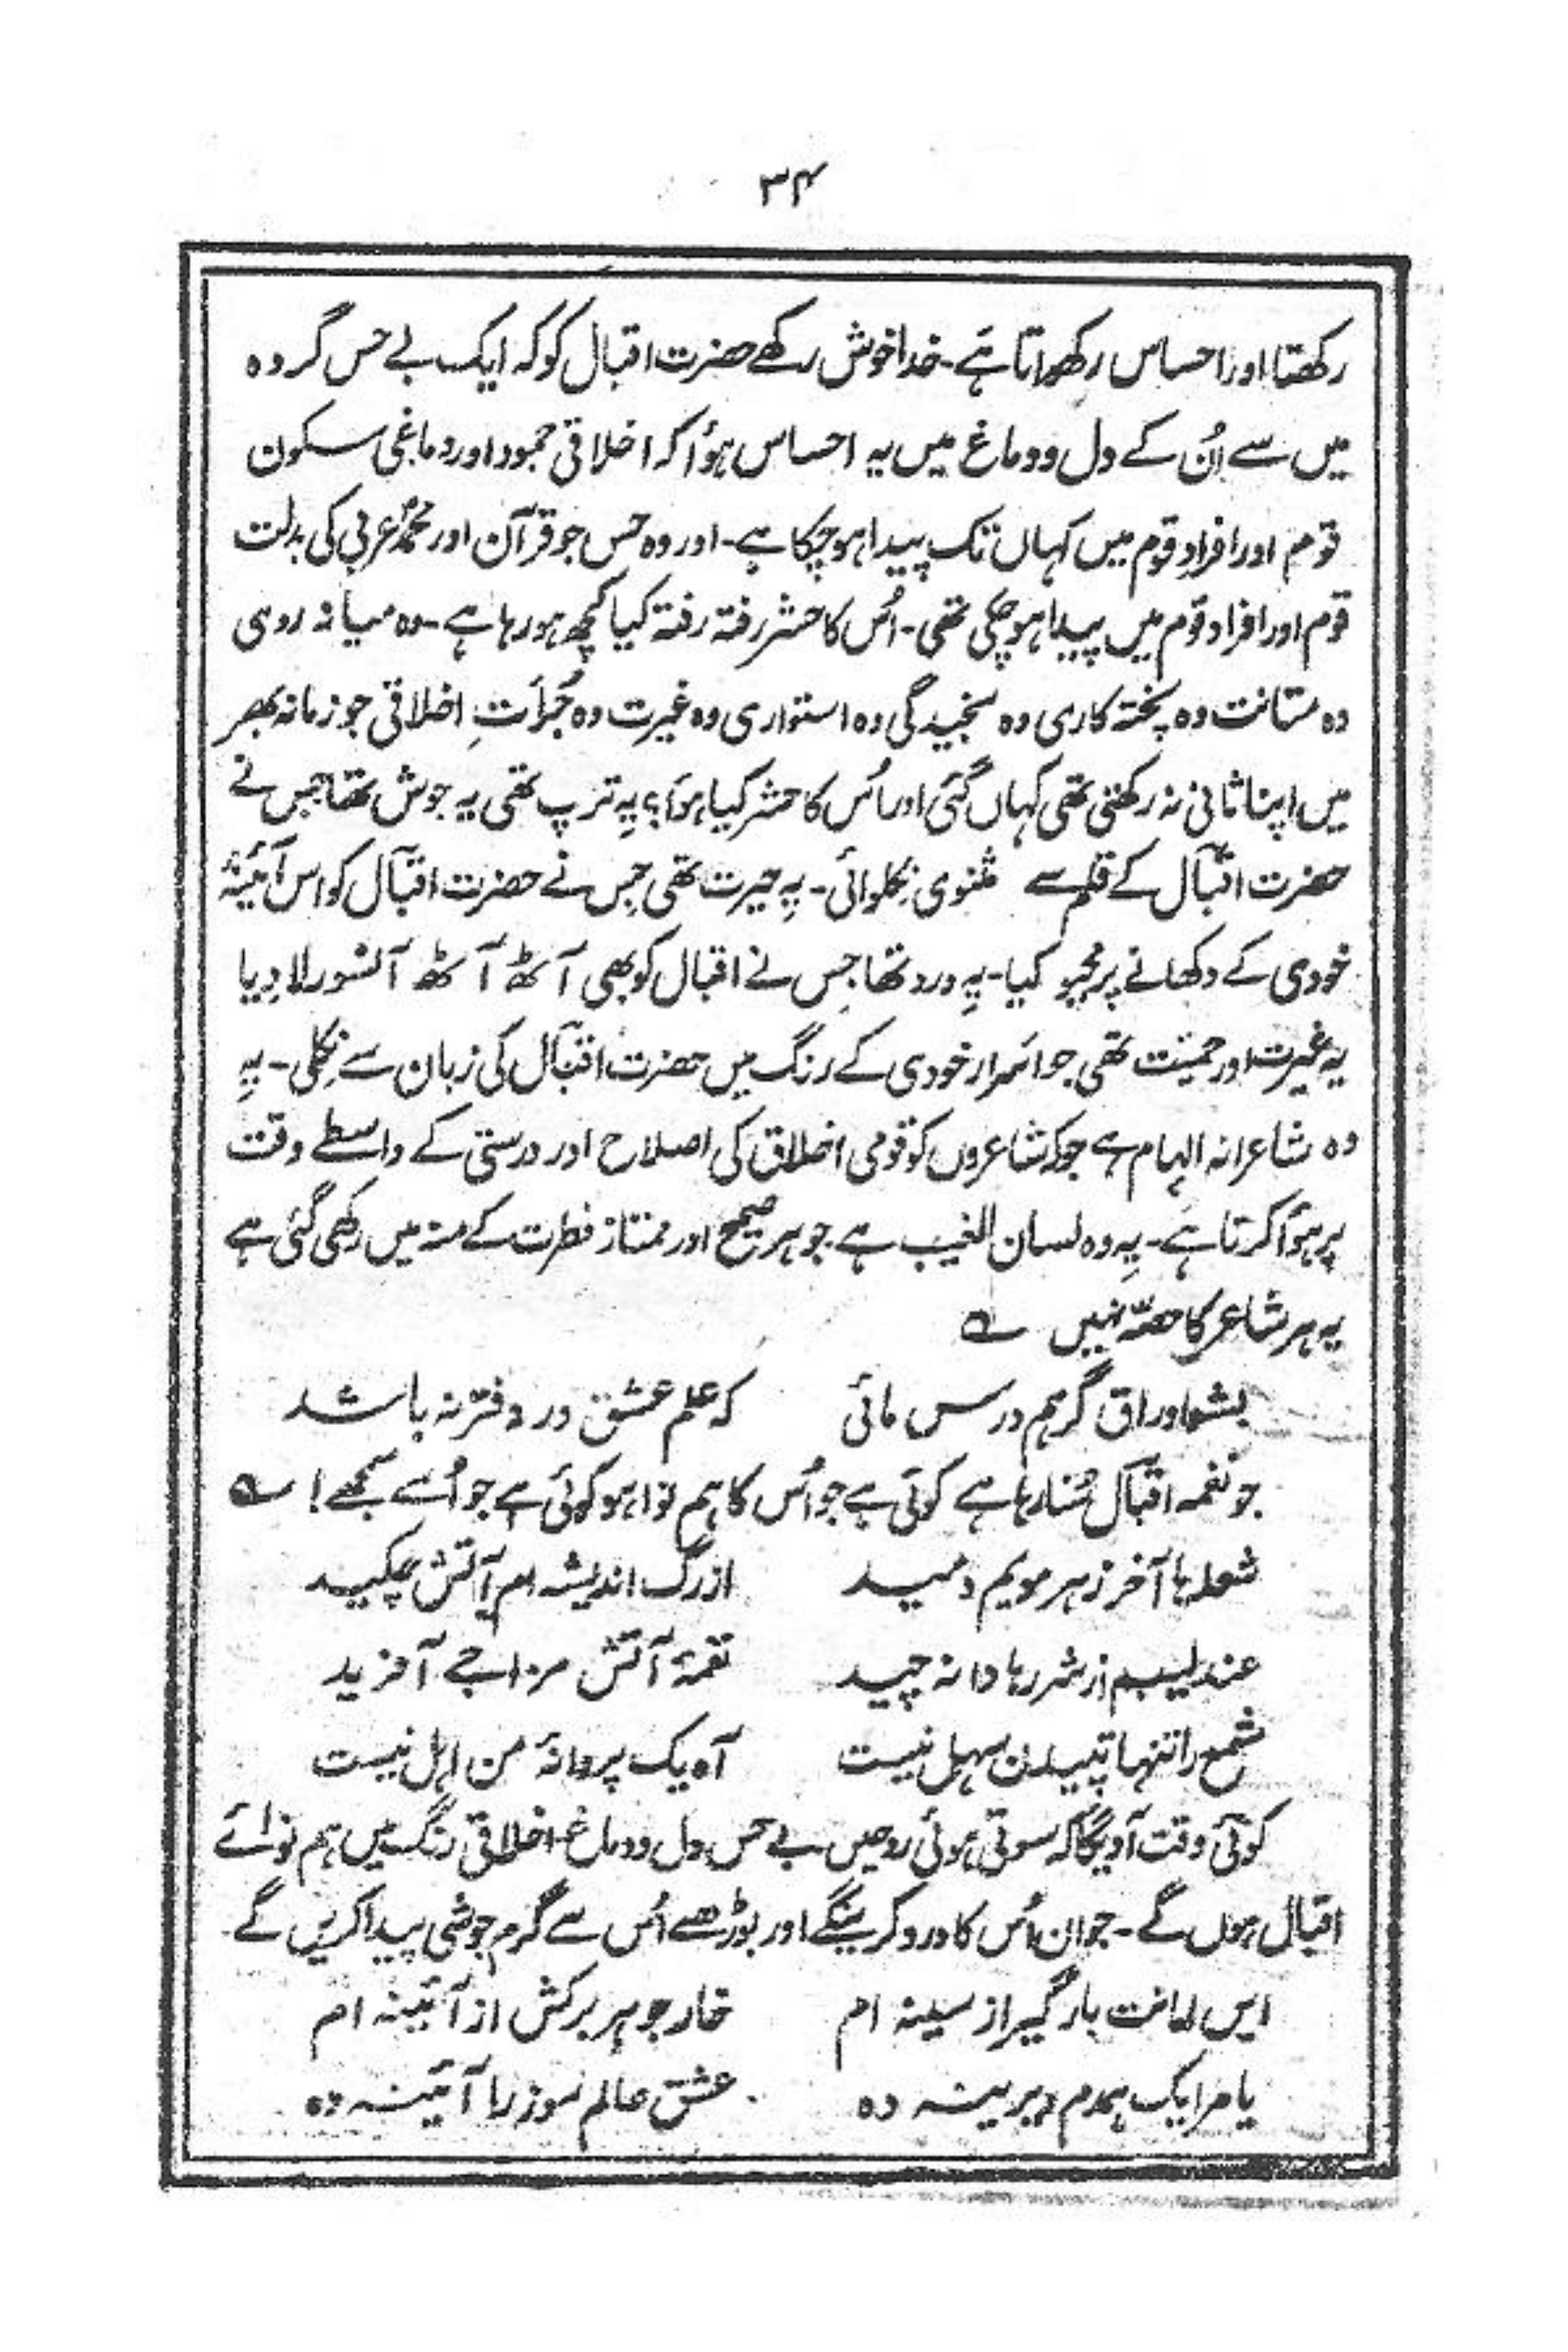 ۳۴
رکھتا اور احساس رکھواتا ہے۔ خدا خوش رکھے حضرت اقبال کو کہ ایک بے حس گروہ
میں سے اُن کے دل و دماغ میں یہ احساس ہؤا کہ اخلاقی جمود اور دماغی سکون
قوم اور افرادِ قوم میں کہاں تک پیدا ہو چکا ہے۔ اور وہ حس جو قرآن اور محمدؐ عربی کی بدولت
قوم اور افراد قوم میں پیدا ہو چکی تھی۔ اُس کا حشر رفتہ رفتہ کیا کچھ ہو رہا ہے۔ وہ میانہ روی
وہ متانت وہ پختہ کاری وہ سنجیدگی وہ استواری وہ غیرت وہ جُرأتِ اخلاقی جو زمانہ بھر
میں اپنا ثانی نہ رکھتی تھی کہاں گئی اور اُس کا حشر کیا ہؤا؟ یہ تڑپ تھی یہ جوش تھا جس نے
حضرت اقبال کے قلم سے مثنوی نکلوائی۔ یہ حیرت تھی جس نے حضرت اقبال کو اس آئینۂ
خودی کے دکھانے پر مجبور کیا۔ یہ درد تھا جس نے اقبال کو بھی آٹھ آٹھ آنسو رلا دیا
یہ غیرت اور حمیّت تھی جو اسرار خودی کے رنگ میں حضرت اقبال کی زبان سے نکلی۔ یہ
وہ شاعرانہ الہام ہے جو کہ شاعروں کو قومی اخلاق کی اصلاح اور درستی کے واسطے وقت
پر ہؤا کرتا ہے۔ یہ وہ لسان الغیب ہے جو ہر صحیح اور ممتاز فطرت کے منہ میں رکھی گئی ہے
یہ ہر شاعر کا حصّہ نہیں ؎
بشو اوراق گر ہم درس مائی کہ علم عشق در دفتر نہ باشد
جو نغمہ اقبال سُنا رہا ہے کوئی ہے جو اُس کا ہم نوا ہو کوئی ہے جو اُسے سمجھے! ؎
شعلہ ہا آخر ز ہر مویم دمید از رگ اندیشہ ام آتش چکید
عندلیبم از شررہا دانہ چید نغمۂ آتش مزاجے آفرید
شمع را تنہا تپیدن سہل نیست آہ یک پروانۂ من اہل نیست
کوئی وقت آویگا کہ سوتی ہوئی روحیں بے حس دل و دماغ اخلاقی رنگ میں ہم نوائے
اقبال ہوں گے۔ جوان اُس کا درد کرینگے اور بوڑھے اُس سے گرم جوشی پیدا کریں گے۔
ایں امانت بازگیر از سینہ ام خار جوہر برکش از آئینہ ام
یا مرا یک ہمدم دیرینہ دہ عشق عالم سوز را آئینہ دہ